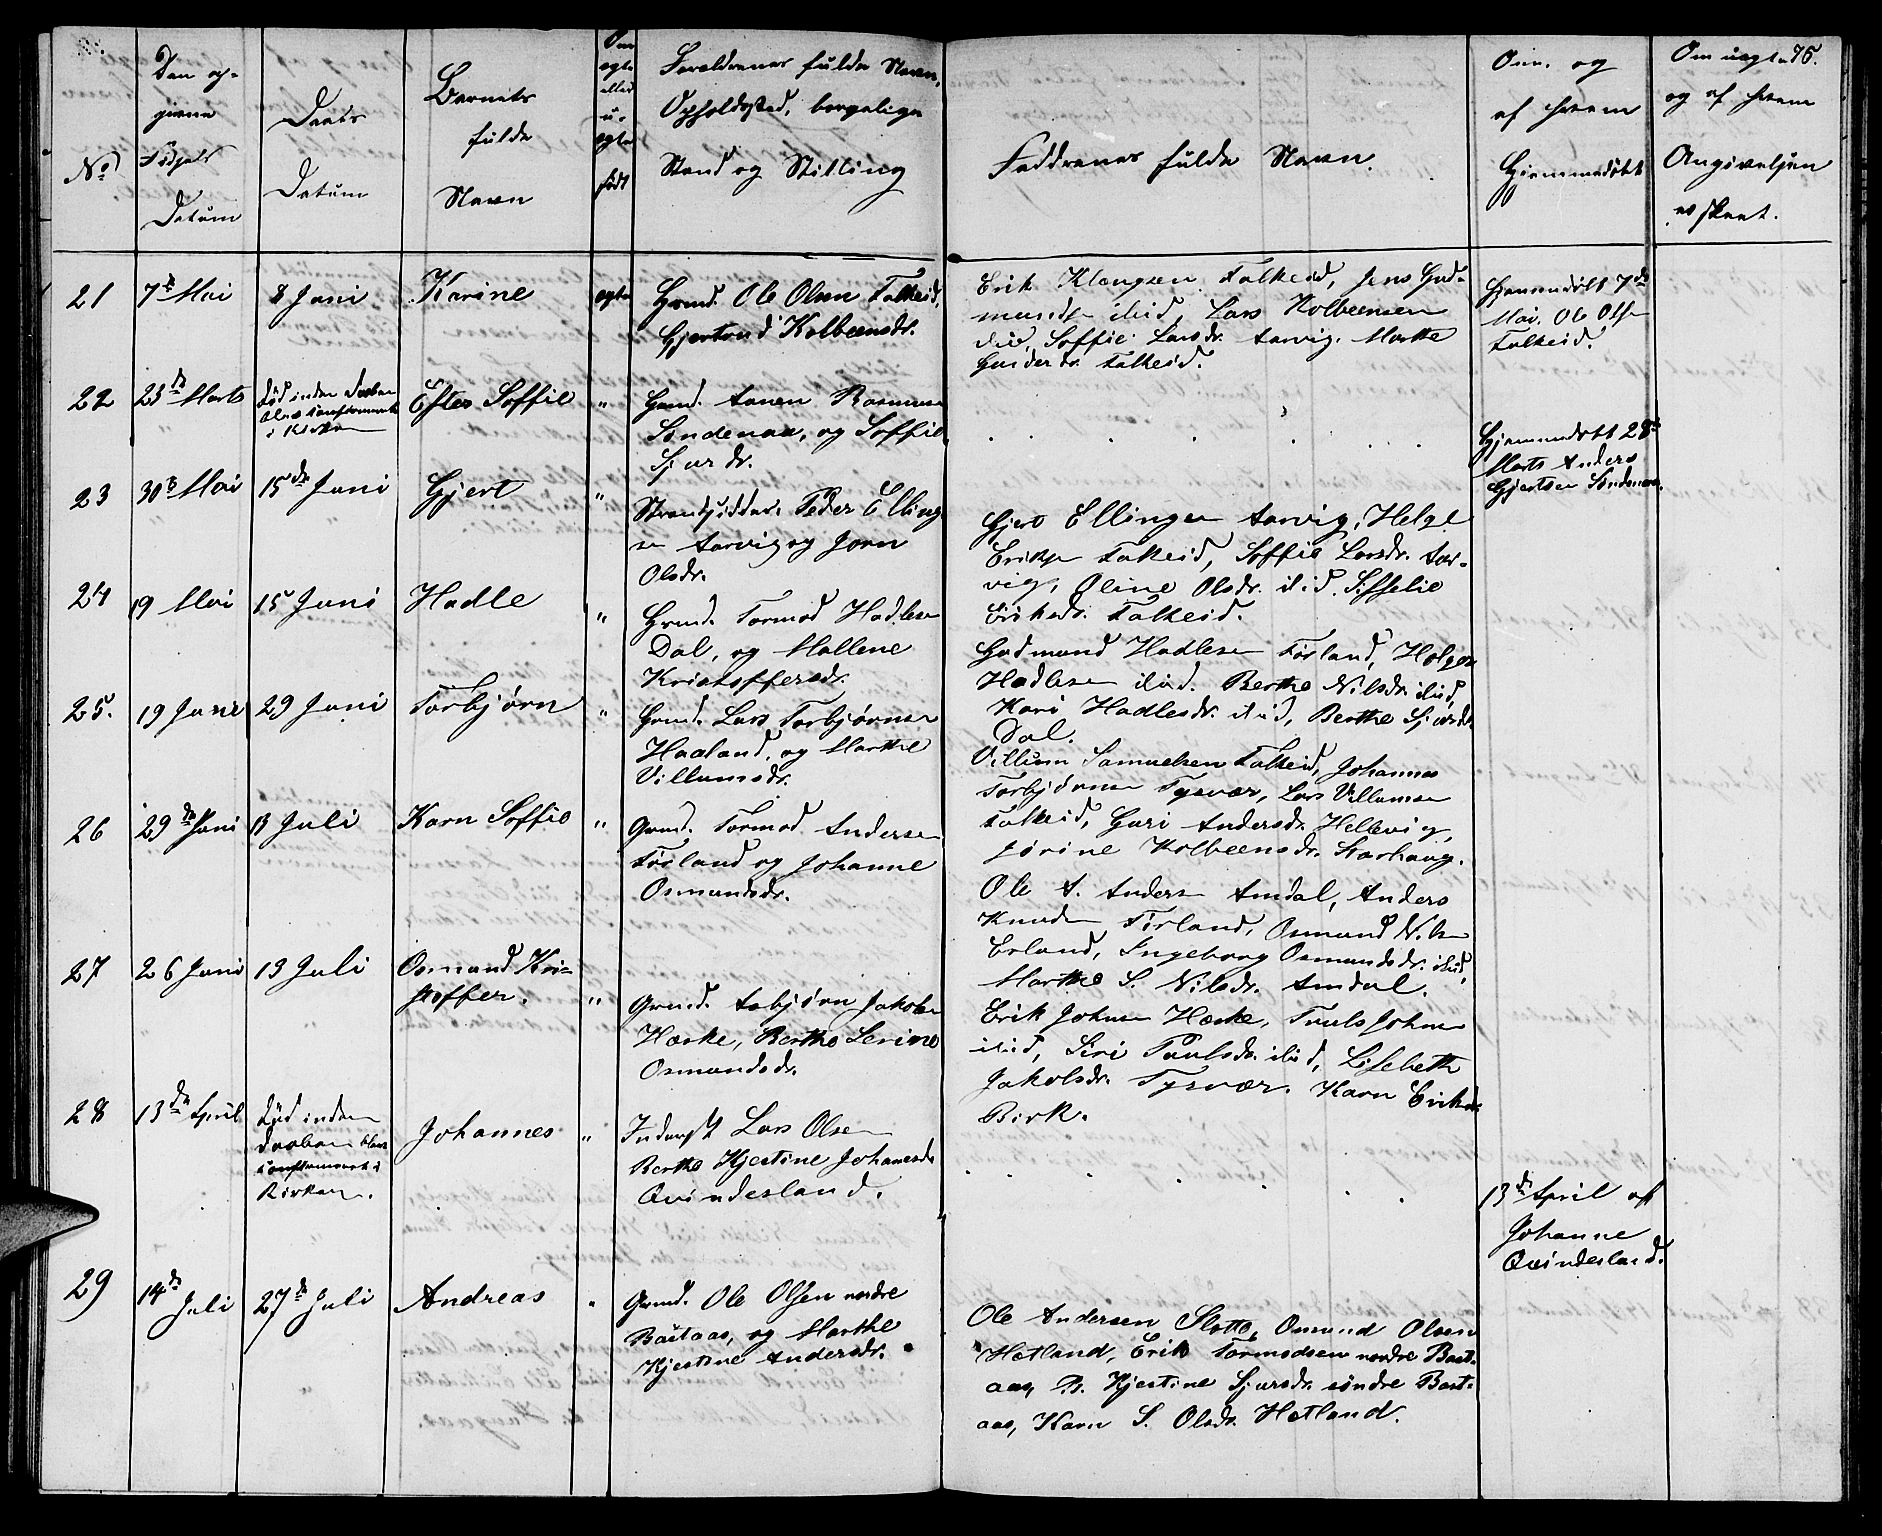 75.
No
Den op-
givne
Fødsels
Datum
Daabs
Datum
Barnets
fulde
Navn
Om
egte
eller
u-
egte
født
Forældrenes fulde Navn,
Opholdssted, borgelige
Stand og Stilling
Faddrenes fulde Navn.
Om og
af hvem
Hjemmedøbt
Om uegte
og af hvem
Angivelsen
er skeet.
21
7de Mai
8 Juni
Karine
egte
Grmd. Ole Olsen Falkeid,
Gjertrud Kolbeensdr.
Erik Klangsen Falkeid, Jens Gud-
mundsen ibid, Lars Kolbeensen
ibid, Soffie Larsdr. Aarvig. Marthe
Falkeid.
Hjemmedøbt 7de
Mai. Ole Olsen
Falkeid.
22
23de Marts
Død inden Daaben
i Kirken
Ester Soffie
"
Grmd. Aanen Rasmusen
Søndenaa, og Soffie
Sjursdr.
Hjemmedøbt 28de
Marts Anders
Gjertsen Søndenaa.
23
30te Mai
15de Juni
Gjert
"
Strandsidder Peder Elling-
sen Aarvig og Joren
Olsdr.
Gjert Ellingsen Aarvig, Helge
Eriksen Falkeid, Soffie Larsdr. Aar-
vig, Oline Olsdr. ibid. Siffelie
Eriksdr. Falkeid.
24
19 Mai
15 Juni
Hadle
"
Grmd. Tormod Hadlesen
Dal, og Mallene
Kristoffersdr.
Gudmund Hadlesen Førland, Holger
Hadlesen ibid. Berthe Nilsdr. ibid,
Kari Hadlesdr. ibid, Berthe Sjursdr.
Dal.
25.
19 Juni
29 Juni
Torbjørn
"
Grmd. Lars Torbjørnsen
Haaland, og Marthe
Villumsdr.
Villum Samuelsen Falkeid, Johannes
Torbjørnsen Tysvær, Lars Villumsen
Falkeid, Guri Andersdr. Hellevig,
Jorine Kolbeensdr. Starhaug.
26
29de Juni
13 Juli
Karn Soffie
"
Grmd. Tormod Andersen
Førland og Johanne
Osmundsdr.
Ole A. Andersen Amdal, Anders
Knudsen Førland, Osmund Nilsen
Erland, Ingeborg Osmundsdr. ibid,
Marthe S. Nilsdr. Amdal.
27
26 Juni
13 Juli
Osmund Kri-
stoffer.
"
Grmd. Asbjørn Jakobsen
Hæske, Berthe Serine
Osmundsdr.
Erik Johnsen Hæske, Truls Johnsen
ibid, Siri Trulsdr. ibid, Lisebeth
Jakobsdr. Tysvær. Karn Eriksdr.
Birk.
28
13de April
Død inden
Daaben
Kirken.
Johannes
"
Inderst Lars Olsen
Berthe Kjestine Johanesdr.
Qvindesland.
13de April af
Johanne
Qvindesland.
29
14de
Juli
27de Juli
Andreas
"
Grmd. Ole Olsen nordre
Bastaas, og Marthe
Kjestine Andersdr.
Ole Andersen Slotte, Osmund Olsen
Hetland, Erik Tormodsen nordre Bast-
aas, B. Kjestine Sjursdr. søndre Bast-
aas, Karn S. Olsdr. Hetland.